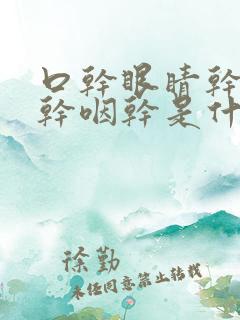 口幹眼睛幹
幹咽幹是什
徐勤
未经同意禁止转载